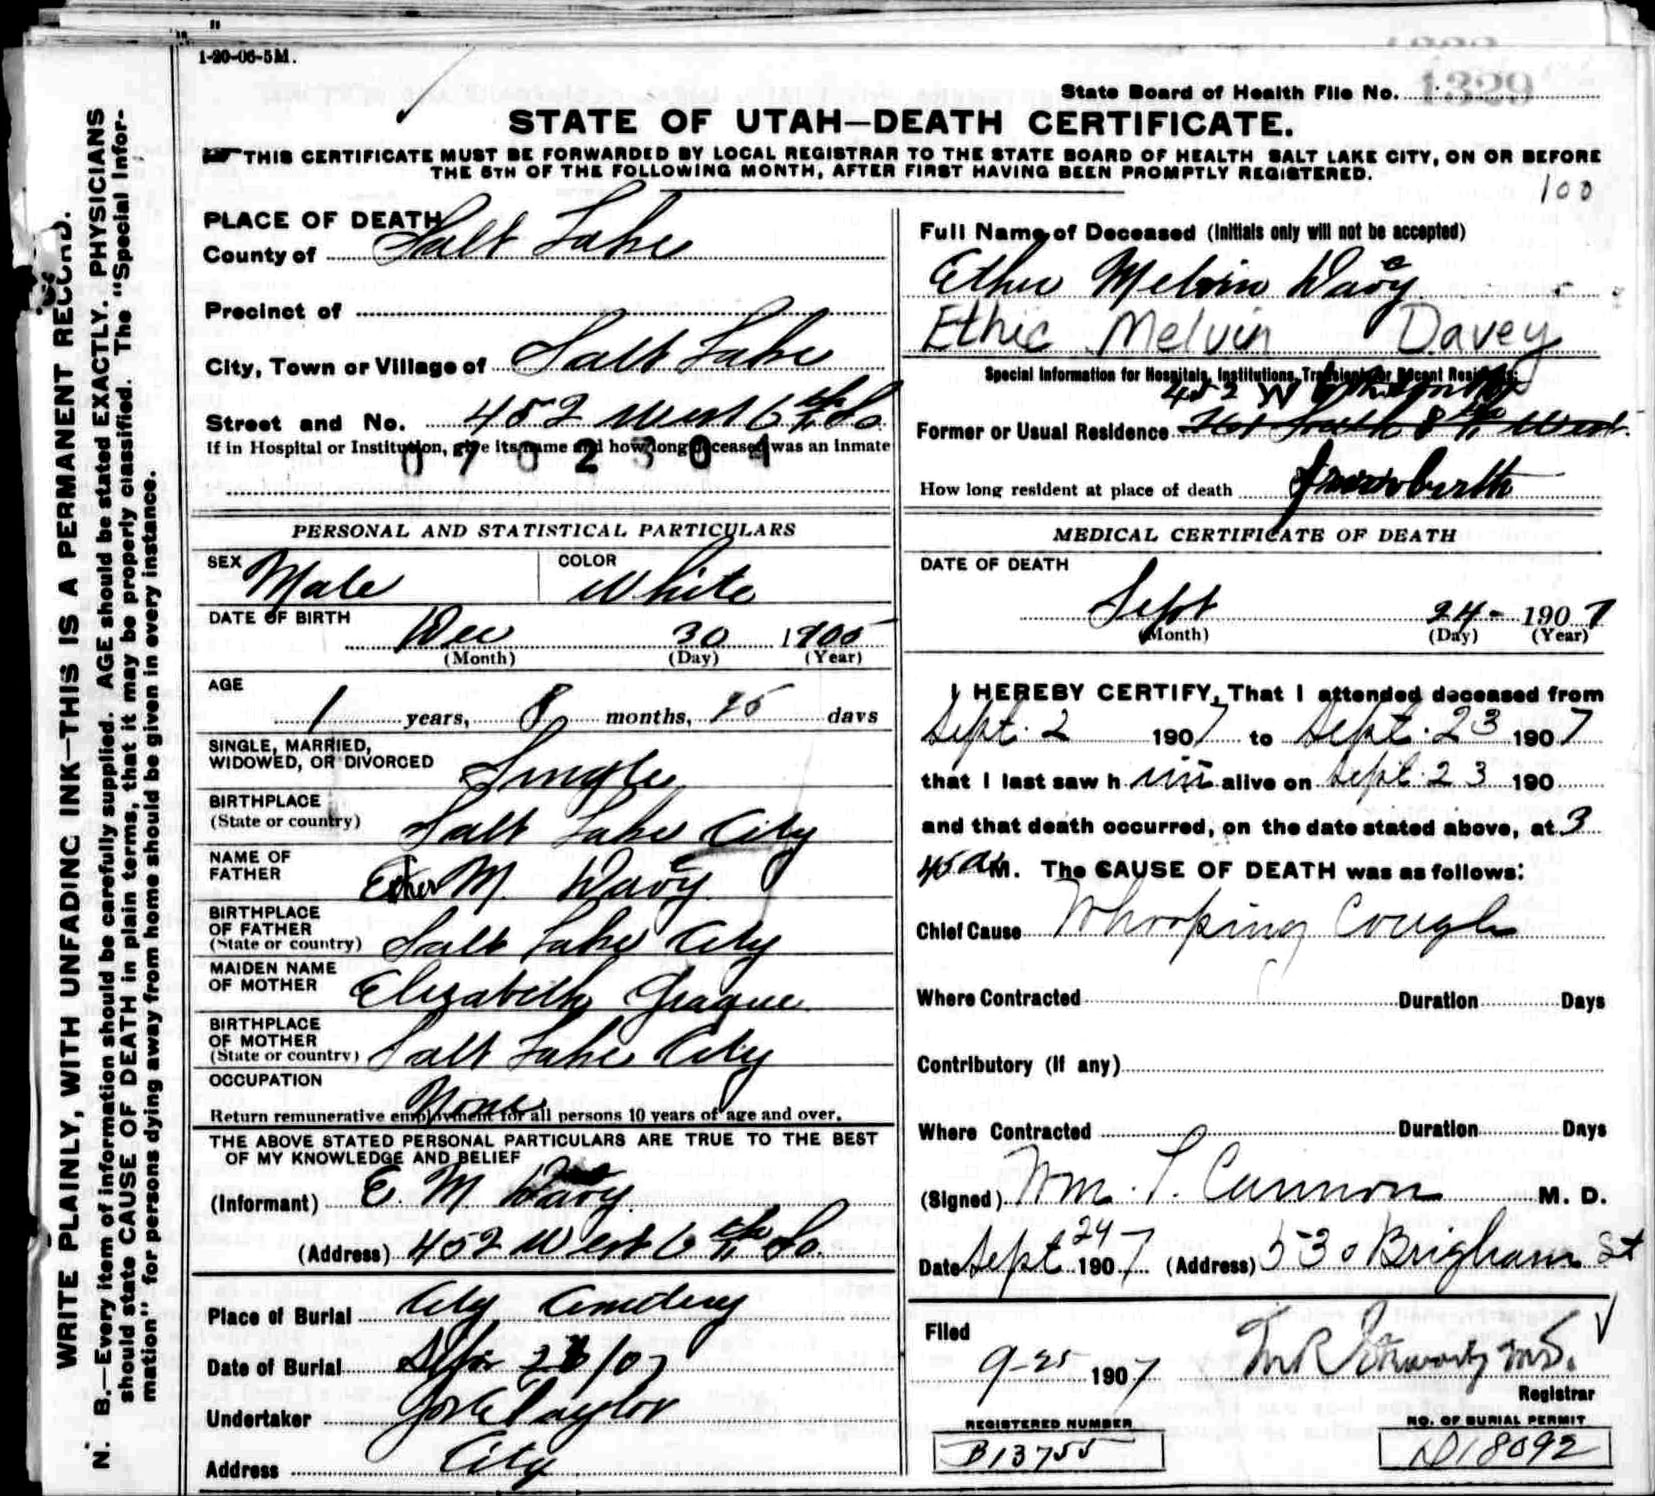 1-20-06-5M.
State Board of Health File No. 1329
STATE OF UTAH—DEATH CERTIFICATE.
THIS CERTIFICATE MUST BE FORWARDED BY LOCAL REGISTRAR TO THE STATE BOARD OF HEALTH SALT LAKE CITY, ON OR BEFORE
THE 5TH OF THE FOLLOWING MONTH, AFTER FIRST HAVING BEEN PROMPTLY REGISTERED.
100
WRITE PLAINLY, WITH UNFADING INK—THIS IS A PERMANENT RECORD.
N. B.—Every item of information should be carefully supplied. AGE should be stated EXACTLY. PHYSICIANS
should state CAUSE OF DEATH in plain terms, that it may be properly classified. The "Special Infor-
mation" for persons dying away from home should be given in every instance.
PLACE OF DEATH
County of Salt Lake
Precinct of
City, Town or Village of Salt Lake
Street and No. 452 West 6th So
If in Hospital or Institution, give its name and how long deceased was an inmate
0702301
PERSONAL AND STATISTICAL PARTICULARS
SEX Male COLOR White
DATE OF BIRTH Dec 30 1905
(Month) (Day) (Year)
AGE
1 years, 8 months, 25 days
SINGLE, MARRIED,
WIDOWED, OR DIVORCED Single
BIRTHPLACE
(State or country) Salt Lake City
NAME OF
FATHER Ether M. Davey
BIRTHPLACE
OF FATHER
(State or country) Salt Lake City
MAIDEN NAME
OF MOTHER Elizabeth
BIRTHPLACE
OF MOTHER
(State or country) Salt Lake City
OCCUPATION
None
Return remunerative employment for all persons 10 years of age and over.
THE ABOVE STATED PERSONAL PARTICULARS ARE TRUE TO THE BEST
OF MY KNOWLEDGE AND BELIEF
(Informant) E. M. Davey
(Address) 452 West 6th So.
Place of Burial City Cemetery
Date of Burial Sept 26/07
Undertaker Jos E Taylor
Address City
Full Name of Deceased (Initials only will not be accepted)
Ether Melvin Davey
Ethic Melvin Davey
Special Information for Hospitals, Institutions, Transients or Recent Residents:
452 W
Former or Usual Residence South 8th West
How long resident at place of death from birth
MEDICAL CERTIFICATE OF DEATH
DATE OF DEATH
Sept 24 - 1907
(Month) (Day) (Year)
I HEREBY CERTIFY, That I attended deceased from
Sept. 2 1907 to Sept. 23 1907
that I last saw him alive on Sept. 23 190
and that death occurred, on the date stated above, at 3
45 a M. The CAUSE OF DEATH was as follows:
Chief Cause Whooping Cough
Where Contracted Duration Days
Contributory (if any)
Where Contracted Duration Days
(Signed) Wm. T. Cannon M. D.
Date Sept 24 1907 (Address) 530 Brigham St
Filed
9-25 1907 M.D.
Registrar
REGISTERED NUMBER
B13755
NO. OF BURIAL PERMIT
D18092